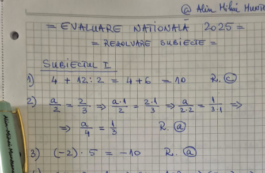 @ Alin Mihai
= EVALUARE NAȚIONALĂ 2025 =
= REZOLVARE SUBIECTE =
SUBIECTUL I
1) 4 + 12 : 2 = 4 + 6 = 10 R. ⓒ
2) a/2 = 2/3 ⇒ a·1/2 = 2·1/3 ⇒ a·1/2·2 = 1/3·1 ⇒
⇒ a/4 = 1/3 R. ⓐ
3) (-2) · 5 = -10 R. ⓐ